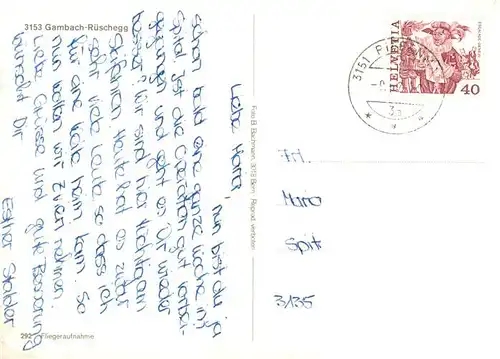 3153 Gambach-Rüschegg
Liebe Maria,
nun bist du ja
schon bald eine ganze Woche im
Spital. Ist die Operation gut vorbei-
gegangen und geht es Dir wieder
besser? Wir sind hier
Skifahren. Heute hat es zwar
sehr viele Leute, so dass ich
für eine keine kam. So
nun wollen wir z'Vieri nehmen.
Liebe Grüsse und gute Besserung
wünscht Dir
Esther Stalder
292 Fliegeraufnahme
Foto B. Bachmann, 3018 Bern Reprod. verboten
3151
HELVETIA
40
Frl.
Spit
3135